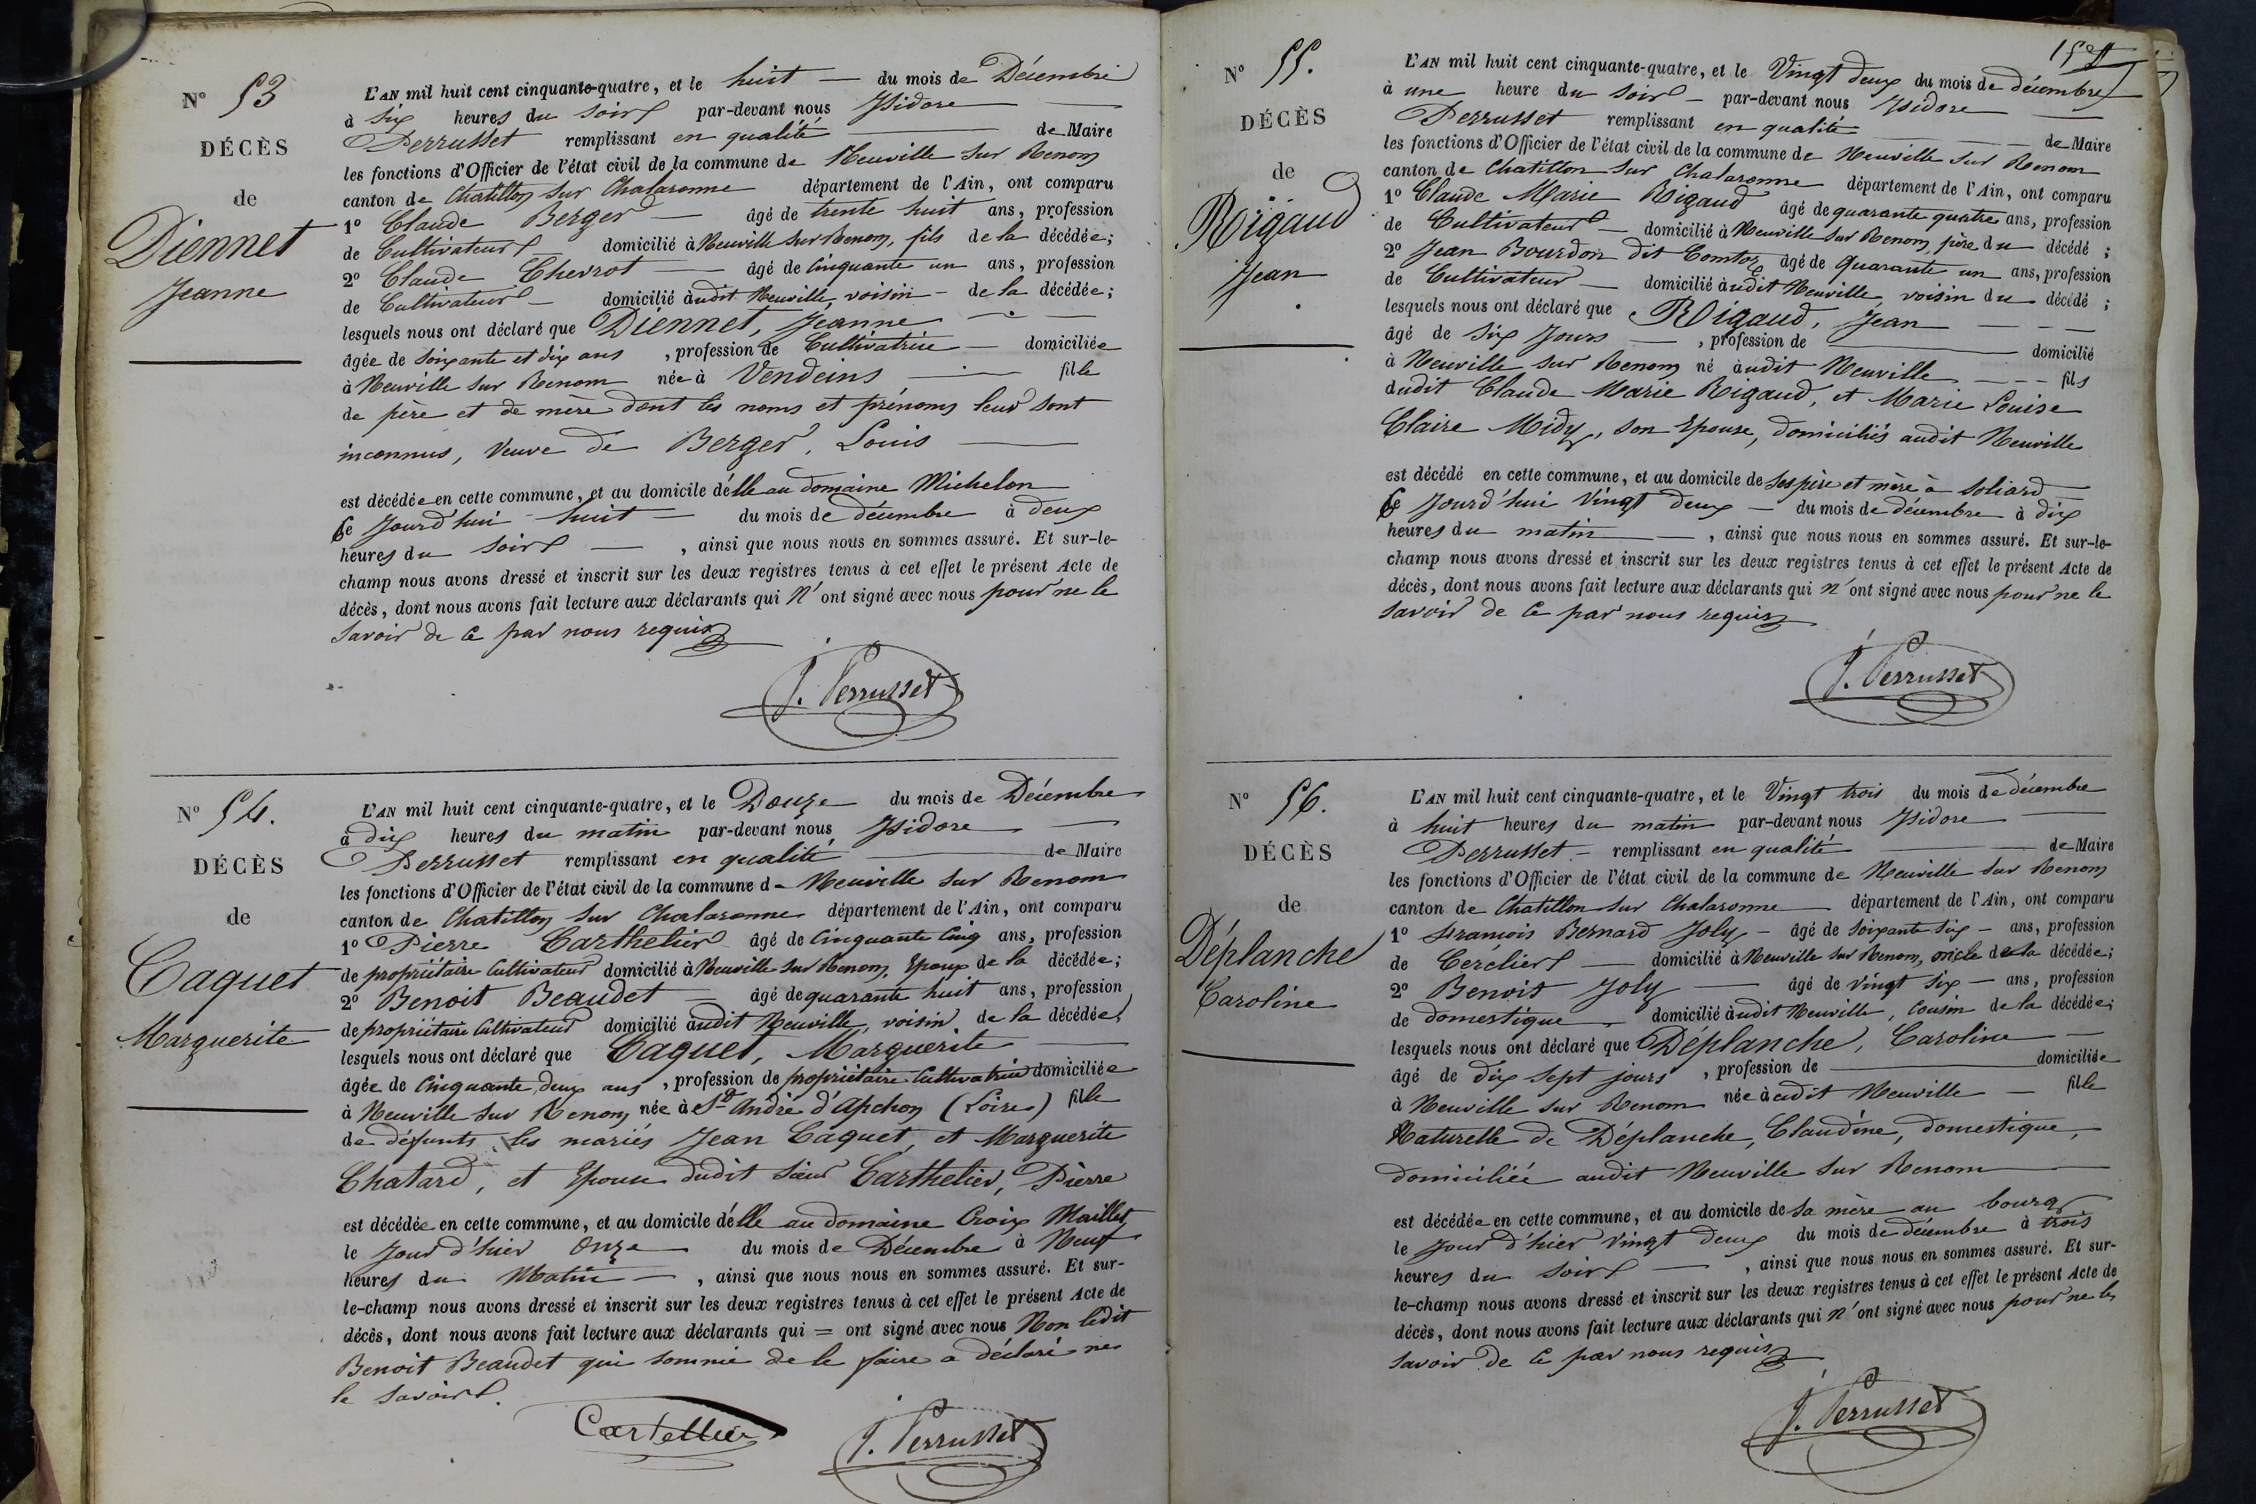 N° 53
DÉCÈS
de
Diennet
Jeanne
L'AN mil huit cent cinquante-quatre, et le huit — du mois de Décembre
à six heures du soir par-devant nous Isidore —
Perrusset remplissant en qualité — de Maire
les fonctions d'Officier de l'état civil de la commune de Neuville sur Renom
canton de Chatillon sur Chalaronne département de l'Ain, ont comparu
1° Claude Berger — âgé de trente huit ans, profession
de Cultivateur domicilié à Neuville sur Renom, fils de la décédée;
2° Claude Chevrot — âgé de Cinquante un ans, profession
de Cultivateur — domicilié audit Neuville, voisin — de la décédée;
lesquels nous ont déclaré que Diennet, Jeanne —
âgée de soixante et dix ans, profession de Cultivatrice — domiciliée
à Neuville sur Renom née à Vendeins — fille
de père et de mère dont les noms et prénoms leur sont
inconnus, Veuve de Berger, Louis —
est décédée en cette commune, et au domicile d'elle au domaine Michelon
Ce Jourd'hui huit — du mois de décembre à deux
heures du soir — , ainsi que nous nous en sommes assuré. Et sur-le-
champ nous avons dressé et inscrit sur les deux registres tenus à cet effet le présent Acte de
décès, dont nous avons fait lecture aux déclarants qui n'ont signé avec nous pour ne le
savoir de ce par nous requis
J. Perrusset
N° 54.
DÉCÈS
de
Caquet
Marguerite
L'AN mil huit cent cinquante-quatre, et le Douze du mois de Décembre
à dix heures du matin par-devant nous Isidore —
Perrusset remplissant en qualité — de Maire
les fonctions d'Officier de l'état civil de la commune de Neuville sur Renom
canton de Chatillon sur Chalaronne département de l'Ain, ont comparu
1° Pierre Carthelier âgé de Cinquante Cinq ans, profession
de propriétaire Cultivateur domicilié à Neuville sur Renom, Epoux de la décédée;
2° Benoit Beaudet — âgé de quarante huit ans, profession
de propriétaire Cultivateur domicilié audit Neuville, voisin de la décédée,
lesquels nous ont déclaré que Caquet, Marguerite —
âgée de Cinquante deux ans, profession de propriétaire Cultivatrice domiciliée
à Neuville sur Renom née à St André d'Apchon (Loire) fille
de défunts les mariés Jean Caquet et Marguerite
Chatard, et Epouse dudit sieur Carthelier, Pierre
est décédée en cette commune, et au domicile d'elle au domaine Croix Maillet
le jour d'hier onze — du mois de Décembre à Neuf
heures du Matin — , ainsi que nous nous en sommes assuré. Et sur-
le-champ nous avons dressé et inscrit sur les deux registres tenus à cet effet le présent Acte de
décès, dont nous avons fait lecture aux déclarants qui = ont signé avec nous Non ledit
Benoit Beaudet qui sommé de le faire a déclaré ne
le savoir.
Cartellier J. Perrusset
N° 55.
DÉCÈS
de
Rigaud
Jean
L'AN mil huit cent cinquante-quatre, et le Vingt deux du mois de décembre
à une heure du soir — par-devant nous Isidore —
Perrusset remplissant en qualité — de Maire
les fonctions d'Officier de l'état civil de la commune de Neuville sur Renom
canton de Chatillon sur Chalaronne département de l'Ain, ont comparu
1° Claude Marie Rigaud âgé de quarante quatre ans, profession
de Cultivateur — domicilié à Neuville sur Renom, père du décédé ;
2° Jean Bourdon dit Comtoz âgé de quarante un ans, profession
de Cultivateur — domicilié audit Neuville, voisin du décédé ;
lesquels nous ont déclaré que Rigaud, Jean —
âgé de six Jours — , profession de — domicilié
à Neuville sur Renom né audit Neuville — fils
dudit Claude Marie Rigaud, et Marie Louise
Claire Midy, son Epouse, domiciliés audit Neuville
est décédé en cette commune, et au domicile de ses père et mère à Soliard
Ce Jourd'hui Vingt deux — du mois de décembre à dix
heures du matin — , ainsi que nous nous en sommes assuré. Et sur-le-
champ nous avons dressé et inscrit sur les deux registres tenus à cet effet le présent Acte de
décès, dont nous avons fait lecture aux déclarants qui n'ont signé avec nous pour ne le
savoir de ce par nous requis
J. Perrusset
N° 56.
DÉCÈS
de
Déplanche
Caroline
L'AN mil huit cent cinquante-quatre, et le Vingt trois du mois de décembre
à huit heures du matin par-devant nous Isidore —
Perrusset — remplissant en qualité — de Maire
les fonctions d'Officier de l'état civil de la commune de Neuville sur Renom
canton de Chatillon sur Chalaronne département de l'Ain, ont comparu
1° François Bernard Joly — âgé de soixante six — ans, profession
de Cerclier — domicilié à Neuville sur Renom, oncle de la décédée;
2° Benoit Joly — âgé de vingt six — ans, profession
de domestique — domicilié audit Neuville, cousin de la décédée;
lesquels nous ont déclaré que Déplanche, Caroline —
âgé de dix sept jours, profession de — domiciliée
à Neuville sur Renom née audit Neuville — fille
Naturelle de Déplanche, Claudine, domestique,
domiciliée audit Neuville sur Renom —
est décédée en cette commune, et au domicile de sa mère au bourg
le jour d'hier Vingt deux du mois de décembre à trois
heures du soir — , ainsi que nous nous en sommes assuré. Et sur-
le-champ nous avons dressé et inscrit sur les deux registres tenus à cet effet le présent Acte de
décès, dont nous avons fait lecture aux déclarants qui n'ont signé avec nous pour ne le
savoir de ce par nous requis
J. Perrusset